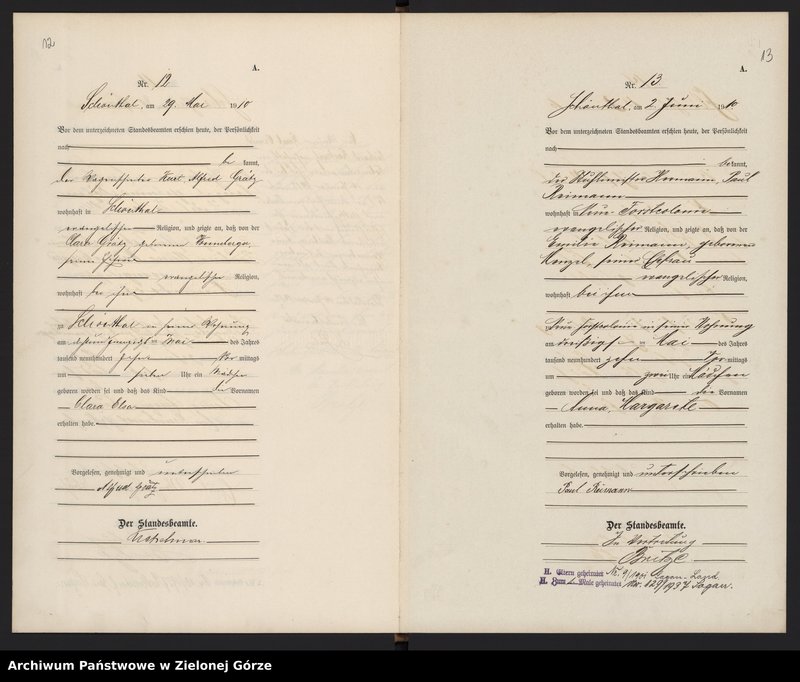 12
A.
Nr. 12
Schönthal, am 29. Mai 1910
Vor dem unterzeichneten Standesbeamten erschien heute, der Persönlichkeit
nach
be kannt,
der Kurt Alfred Grätz
wohnhaft in Schönthal
evangelischer Religion, und zeigte an, daß von der
Clara Grätz geborene
seiner Ehefrau
evangelischer Religion,
wohnhaft bei ihm
zu Schönthal in seiner Wohnung
am des Jahres
tausend neunhundert zehn Vor mittags
um sieben Uhr ein Mädchen
geboren worden sei und daß das Kind die Vornamen
Clara Elsa
erhalten habe.
Vorgelesen, genehmigt und unterschrieben
Alfred Grätz
Der Standesbeamte.
13
A.
Nr. 13.
Schönthal, am 2. Juni 1910
Vor dem unterzeichneten Standesbeamten erschien heute, der Persönlichkeit
nach
bekannt,
der Hermann, Paul
Reimann
wohnhaft in Neue Forstcolonie
evangelischer Religion, und zeigte an, daß von der
Emilie Reimann, geborenen
Menzel, seiner Ehefrau
evangelischer Religion,
wohnhaft bei ihm
zu Neue Forstcolonie in seiner Wohnung
am dreißigsten Mai des Jahres
tausend neunhundert zehn Vor mittags
um zwei Uhr ein Mädchen
geboren worden sei und daß das Kind die Vornamen
Anna, Margarete
erhalten habe.
Vorgelesen, genehmigt und unterschrieben
Paul Reimann
Der Standesbeamte.
In Vertretung
H. Eltern geheiratet Nr. 9/1901 Sagan-Land
H. Zum 1. Male geheiratet Nr. 129/1937 Sagan.
Archiwum Państwowe w Zielonej Górze